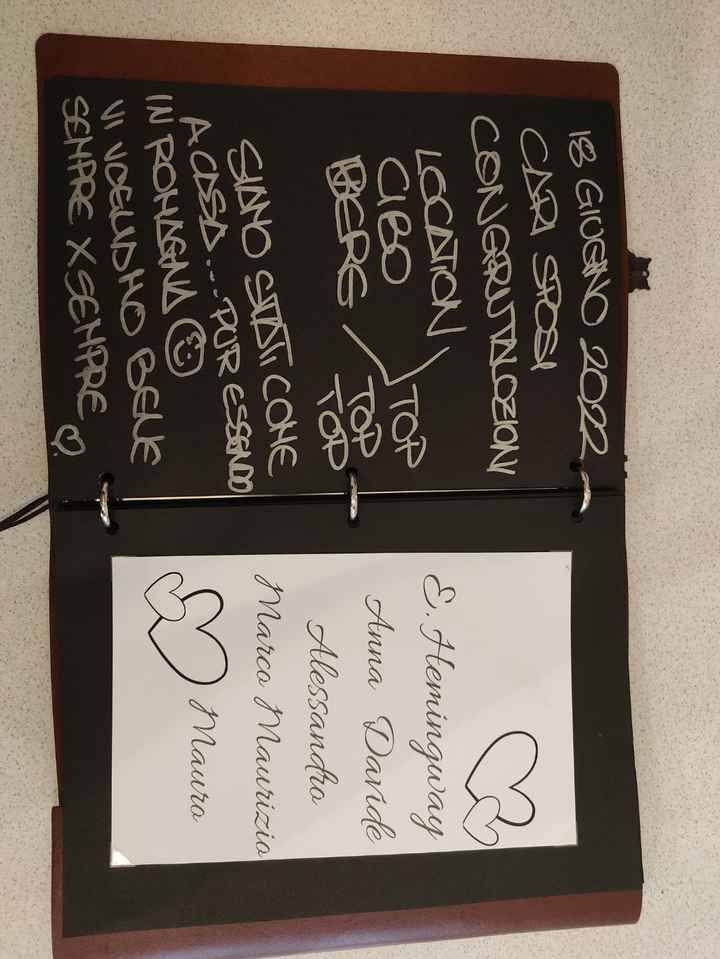 18 GIUGNO 2022
CARI SPOSI
CONGRUTALOZIONI
LOCATION TOP
CIBO TOP
BERE TOP
SIAMO STATI COME
A CASA... PUR ESSENDO
IN ROMAGNA
VI VOGLIAMO BENE
SEMPRE X SEMPRE
E. Hemingway
Anna Davide
Alessandro
Marco Maurizio
Mauro